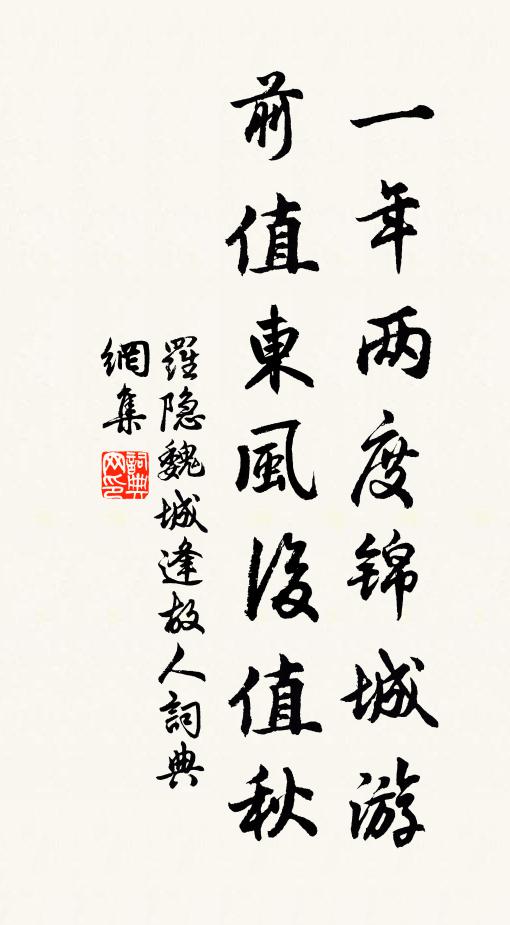 一年两度锦城游
前值東風後值秋
羅隐魏城逢故人詞典
網集
詞典
网印